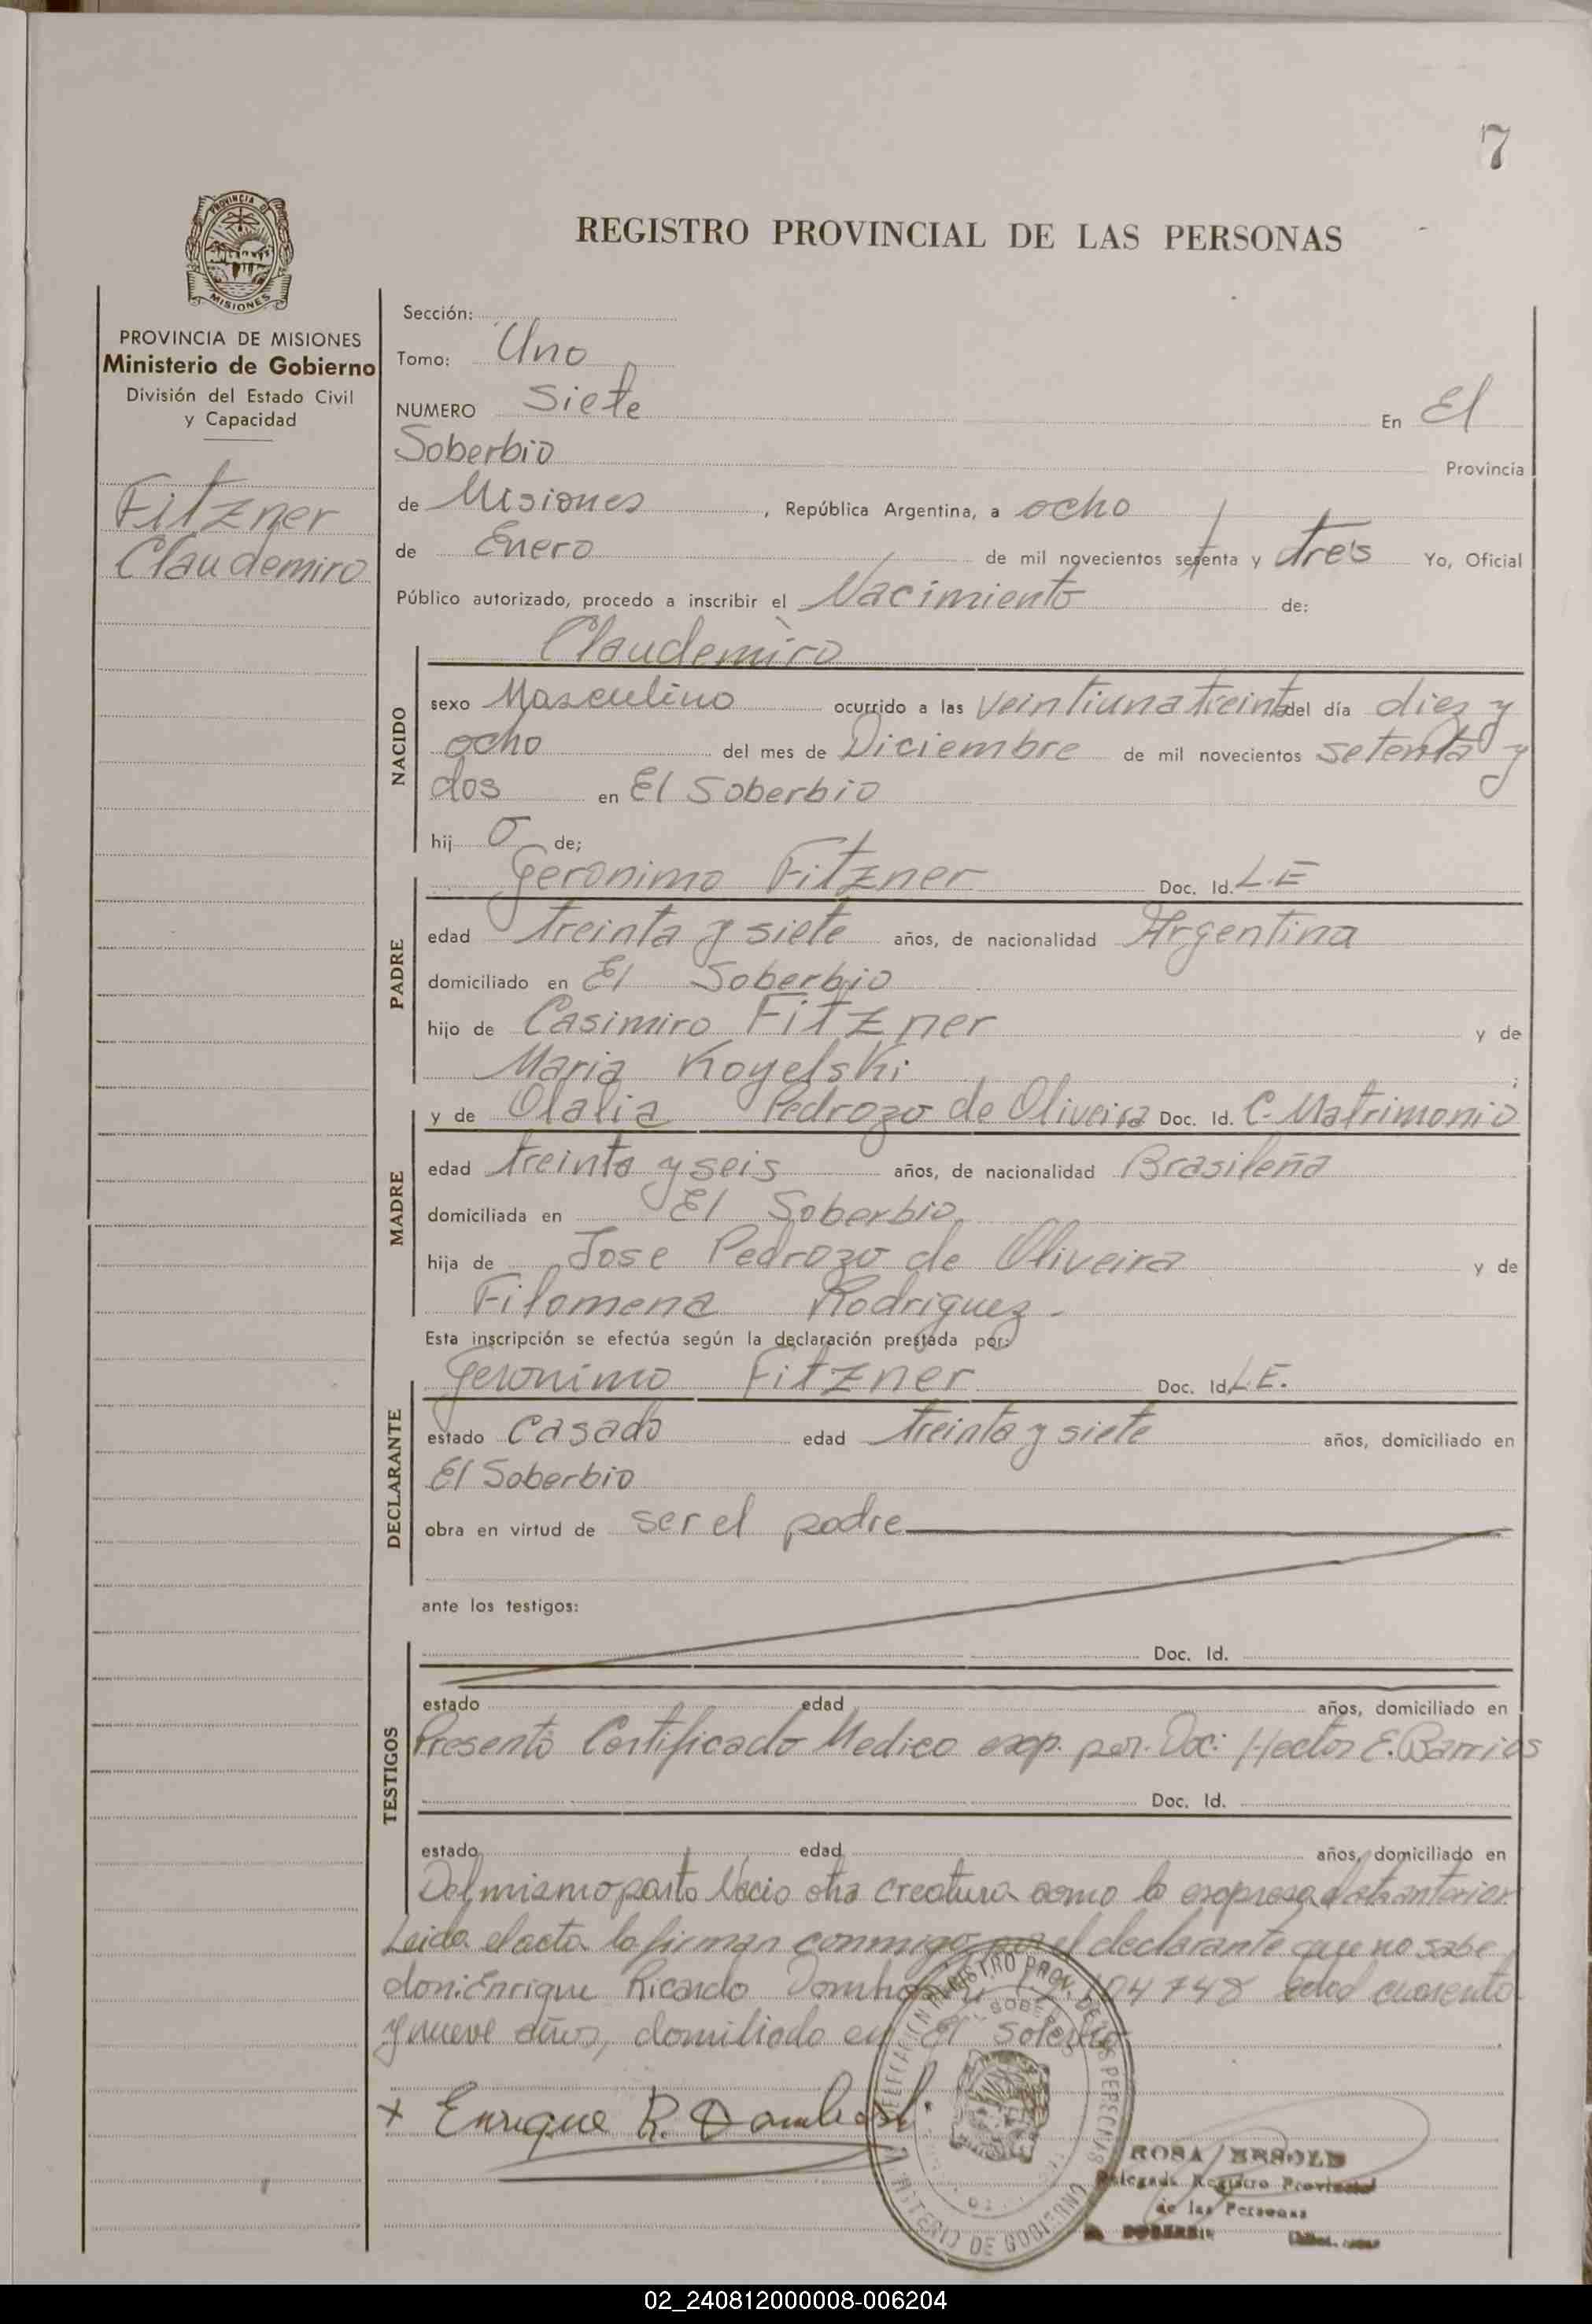 7
PROVINCIA DE
MISIONES
REGISTRO PROVINCIAL DE LAS PERSONAS
PROVINCIA DE MISIONES
Ministerio de Gobierno
División del Estado Civil
y Capacidad
Fitzner
Claudemiro
Sección:
Tomo: Uno
NUMERO Siete En El
Soberbio Provincia
de Misiones, República Argentina, a ocho
de Enero de mil novecientos setenta y tres Yo, Oficial
Público autorizado, procedo a inscribir el Nacimiento de:
NACIDO
Claudemiro
sexo Masculino ocurrido a las veintiuna treinta del día diez y
ocho del mes de Diciembre de mil novecientos setenta y
dos en El Soberbio
hij o de;
PADRE
Geronimo Fitzner Doc. Id. L.E
edad treinta y siete años, de nacionalidad Argentina
domiciliado en El Soberbio
hijo de Casimiro Fitzner y de
Maria Koyelski;
MADRE
y de Olalia Pedrozo de Oliveira Doc. Id. C. Matrimonio
edad treinta y seis años, de nacionalidad Brasileña
domiciliada en El Soberbio
hija de Jose Pedrozo de Oliveira y de
Filomena Rodriguez.
Esta inscripción se efectúa según la declaración prestada por:
DECLARANTE
Geronimo Fitzner Doc. Id. L.E.
estado casado edad treinta y siete años, domiciliado en
El Soberbio
obra en virtud de ser el padre
ante los testigos:
TESTIGOS
Doc. Id.
estado edad años, domiciliado en
Presentó Certificado Medico exp. por. Doc: Hector E. Barrios
Doc. Id.
estado edad años, domiciliado en
Del mismo parto Nacio otra creatura como lo expresa el acta anterior
Leida el acta la firman conmigo, por el declarante que no sabe
don: Enrique Ricardo 104748 edad cuarenta
y nueve años, domiliado en El Soberbio
x Enrique R.
REGISTRO PROV. DE LAS PERSONAS
MINISTERIO DE GOBIERNO
ROSA
Delegada Registro Provincial
de las Personas
SOBERBIO
02_240812000008-006204